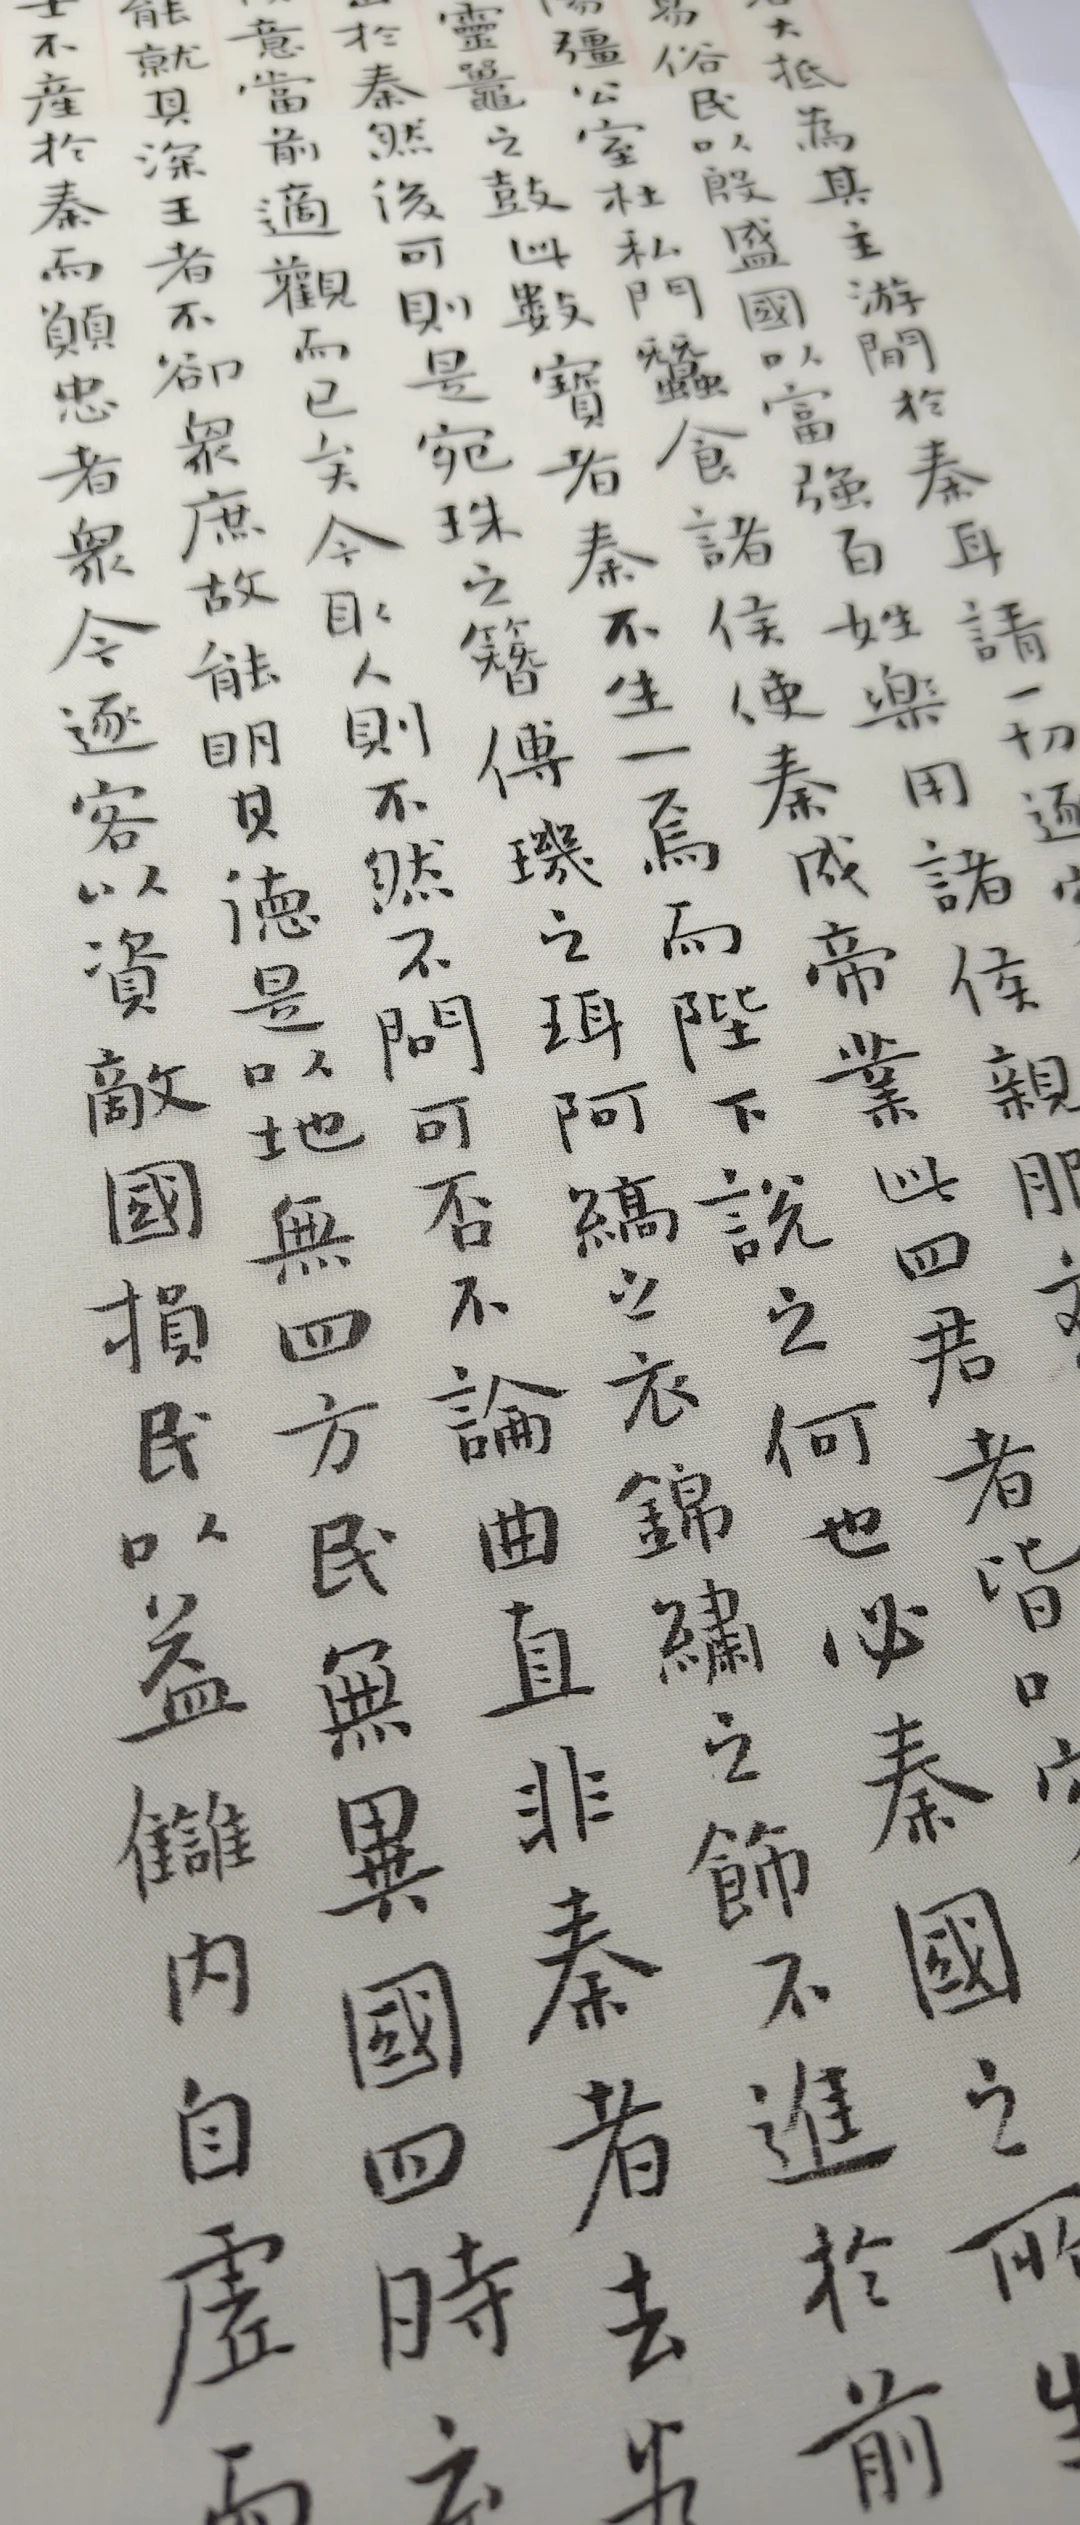 大抵為其主游間於秦耳請一切逐
易俗民以殷盛國以富強百姓楽用諸侯親服
彊公室杜私門蠶食諸侯使秦成帝業此四君者皆以
靈鼉之鼓此數寶者秦不生一焉而陛下說之何也必秦國之所生
於秦然後可則是宛珠之簪傅璣之珥阿縞之衣錦繡之飾不進於前
意當前適觀而已矣今取人則不然不問可否不論曲直非秦者去
能就其深王者不卻眾庶故能明其徳是以地無四方民無異國四時充
士不産於秦而願忠者眾今逐客以資敵國損民以益讎内自虛而